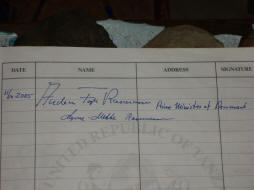 DATE NAME ADDRESS SIGNATURE
2005 Anders Fogh Rasmussen Prime Minister of Denmark
Anne-Mette Rasmussen
UNITED REPUBLIC OF TANZ